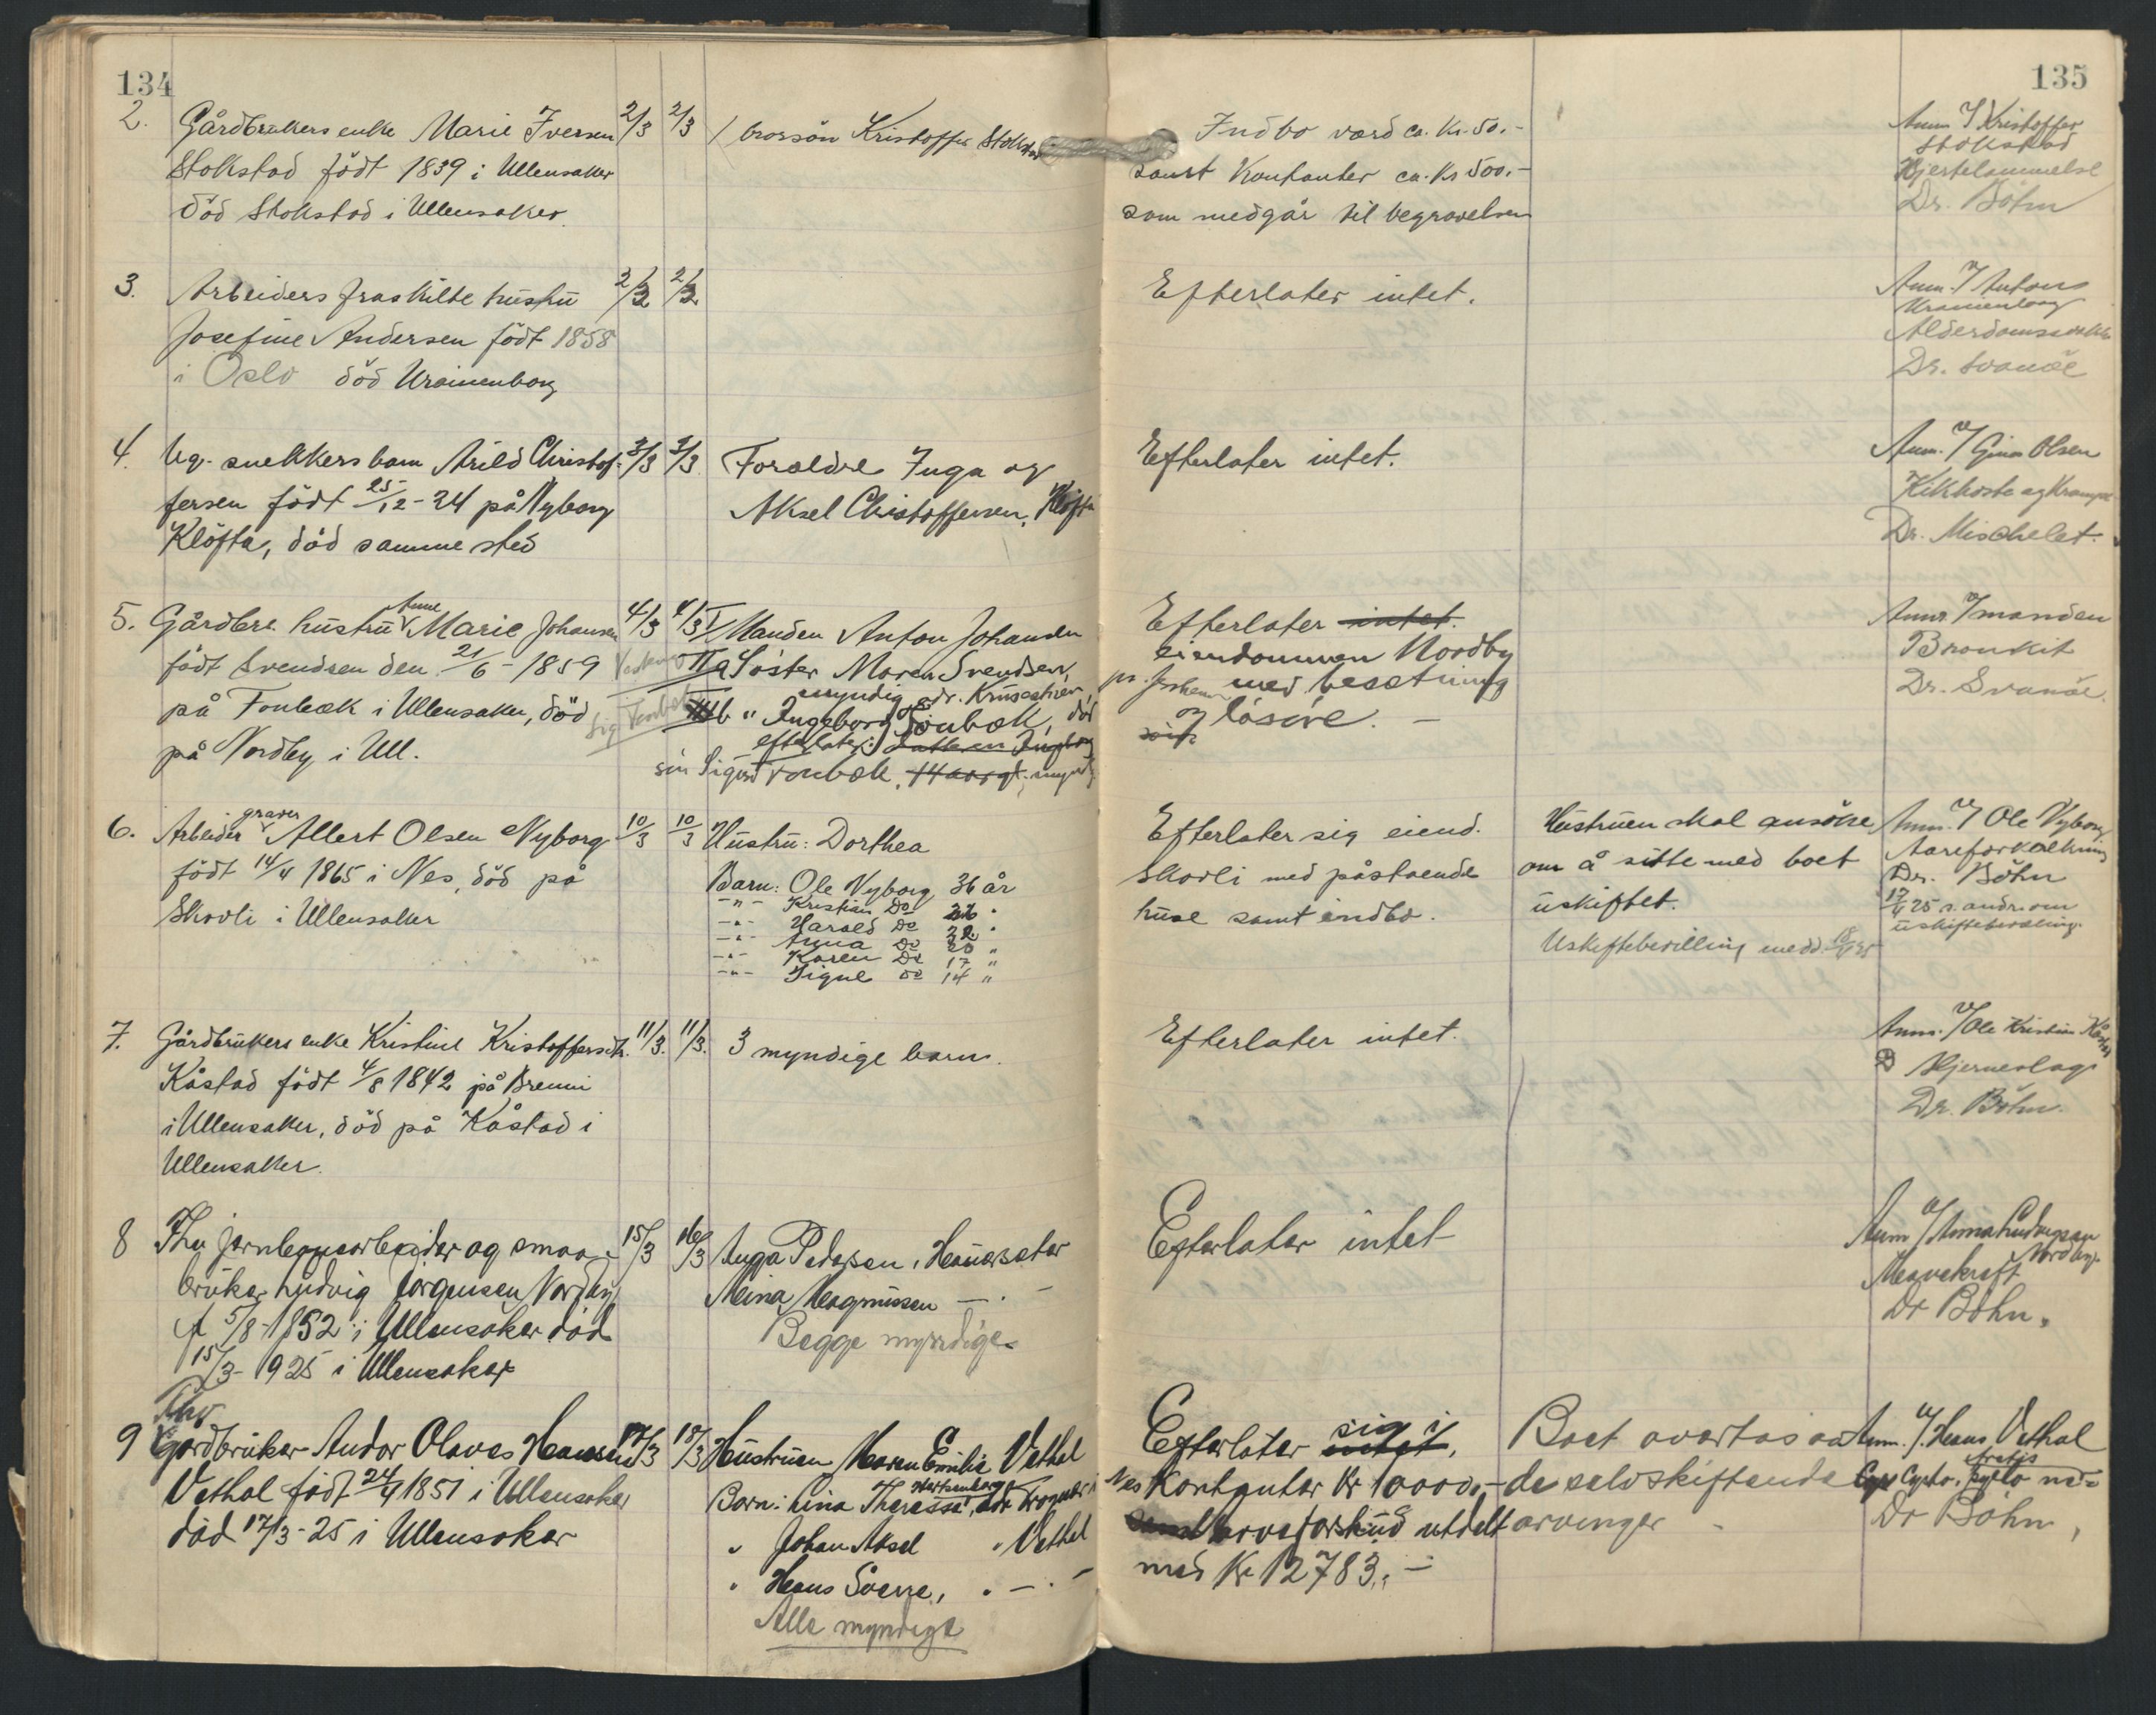 134
2. Gårdbrukers enke Marie Iversen 2/3 2/3 / brorsön Kristoffer Stokstad
Stokstad födt 1839 i Ullensaker
död Stokstad i Ullensaker.
3. Arbeiders fraskilte hustru 2/3 2/3.
Josefine Andersen födt 1858
i Oslo död Uranienborg
4. Ug. snekkers barn Arild Christof- 3/3 3/3. Foreldre Inga og
fersen födt 25/12-24 på Nyborg Aksel Christoffersen, Klöfta
Klöfta, död samme sted
5. Gårdbr. hustru Anne Marie Johansen 4/3 4/3 I/ Manden Anton Johansen
født Svendsen den 21/6-1859 II a Söster Maren Svendsen,
på Fonbæk i Ullensaker, död myndig adr.
b " Ingeborg Fonbæk, död
på Nordby i Ull. efterlater:
sön Sigurd Fonbæk, 14 aar gl. myndig
6. Arbeider graver Albert Olsen Nyborg 10/3 10/3 Hustru: Dorthea
födt 14/4 1865 i Nes, död på Barn: Ole Nyborg 36 år
Skovli i Ullensaker -"- Kristian Do 26 "
-"- Harald Do 22 "
-"- Anna Do 20 "
-"- Karen Do 17 "
-"- Signe do 14 "
7. Gårdbrukers enke Kristine Kristoffersdtr. 11/3. 11/3. 3 myndige barn.
Kåstad födt 4/8 1842 på Brenni
i Ullensaker, död på Kåstad i
Ullensaker.
8 Fhv jernbanearbeider og smaa- 15/3 16/3 Inga Pedersen, Hauerseter
bruker Ludvig Jörgensen Nordby Mina Magnussen — " —
f 5/8-1852 i Ullensaker död Begge myndige.
15/3-1925 i Ullensaker
9 Fhv Gardbruker Andor Olaves Hansen 17/3 18/3 Hustruen Maren Emilie Vethal
Vethal födt 24/4 1851 i Ullensaker Barn: Lina Theresse,
död 17/3-25 i Ullensaker " Johan Aksel " Vethal
" Hans Sverre, " — " —
Alle myndige
135
Indbo værd ca. Kr. 50.- Anm. v/ Kristoffer
samt Kontanter ca. Kr 500.- Stokstad
som medgår til begravelsen Hjertelammelse
Dr. Böhm
Efterlater intet. Anm. v/ Antons
Uranienborg
Alderdomssvakh.
Dr. Svanöe
Efterlater intet. Anm. v/ Gina Olsen
Kikhoste og Krampe
Dr. Mischelet.
Efterlater intet. Anm v/ manden
eiendommen Nordby Bronkit
pr. Jessheim med besætning Dr. Svanöe.
og lösöre. —
Efterlater sig eiend. Hustruen skal ansöke Anm. v/ Ole Nyborg
Skovli med påstaende om å sitte med boet Aareforkalkning
huse samt indbo. uskiftet. Dr. Böhn
Uskiftebevilling medd. 18/4 25 17/4 25 s. andr. om
uskiftebevilling.
Efterlater intet. Anm. v/ Ole Kristian Kåstad
Hjerneslag
Dr. Böhn.
Efterlater intet Anm v/ Anna Ludvigsen
Nordby.
Mavekreft
Dr Böhn.
Efterlater sig i intet, Boet overtas av Anm. v/. Hans Vethal
Nes Kontanter Kr 10000,- de selvskiftende
samt arveforskud utdelt arvinger Dr Böhn,
med Kr 12783,-